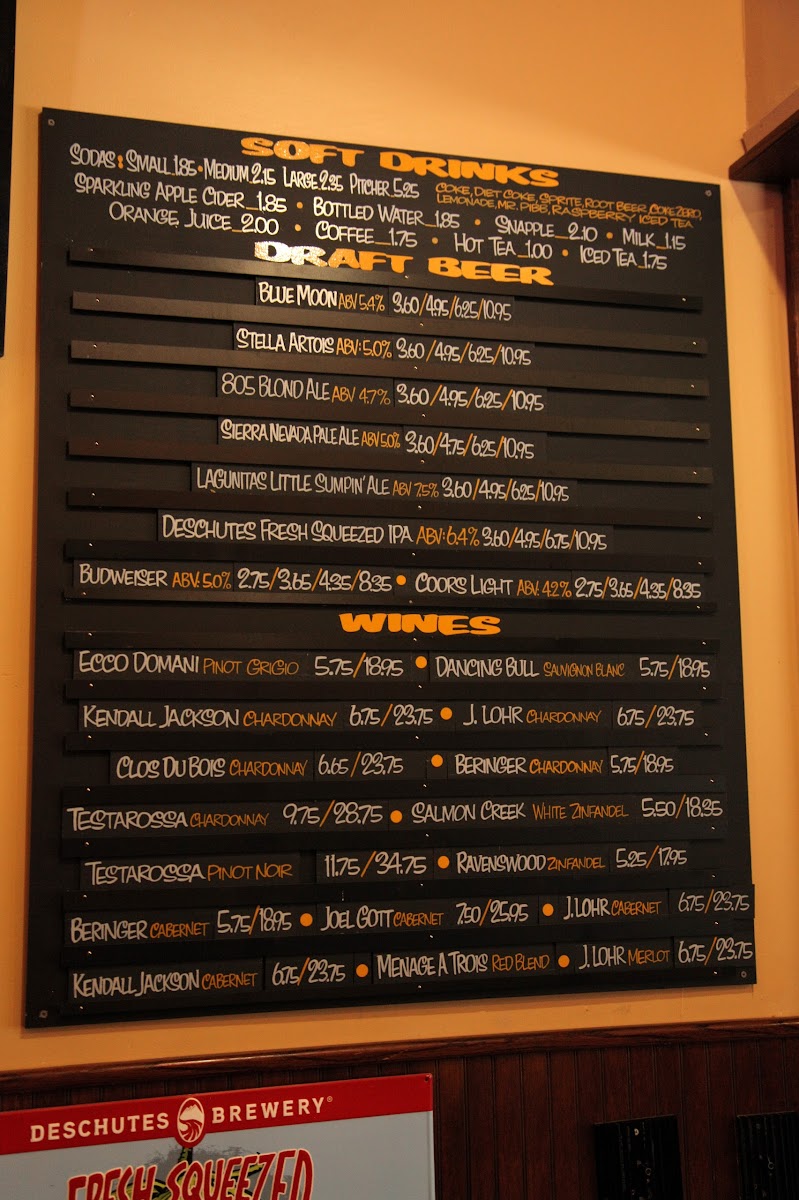 SOFT DRINKS
SODAS: SMALL 1.85 • MEDIUM 2.15 LARGE 2.35 PITCHER 5.25 COKE, DIET COKE, SPRITE, ROOT BEER, COKE ZERO,
LEMONADE, MR. PIBB, RASPBERRY ICED TEA
SPARKLING APPLE CIDER_1.85 • BOTTLED WATER_1.85 • SNAPPLE_2.10 • MILK_1.15
ORANGE JUICE_2.00 • COFFEE_1.75 • HOT TEA_1.00 • ICED TEA_1.75
DRAFT BEER
BLUE MOON ABV 5.4% 3.60/4.95/6.25/10.95
STELLA ARTOIS ABV: 5.0% 3.60/4.95/6.25/10.95
805 BLOND ALE ABV 4.7% 3.60/4.95/6.25/10.95
SIERRA NEVADA PALE ALE ABV 5.0% 3.60/4.75/6.25/10.95
LAGUNITAS LITTLE SUMPIN' ALE ABV 7.5% 3.60/4.95/6.25/10.95
DESCHUTES FRESH SQUEEZED IPA ABV: 6.4% 3.60/4.95/6.75/10.95
BUDWEISER ABV: 5.0% 2.75/3.65/4.35/8.35 • COORS LIGHT ABV: 4.2% 2.75/3.65/4.35/8.35
WINES
ECCO DOMANI PINOT GRIGIO 5.75/18.95 • DANCING BULL SAUVIGNON BLANC 5.75/18.95
KENDALL JACKSON CHARDONNAY 6.75/23.75 • J. LOHR CHARDONNAY 6.75/23.75
CLOS DU BOIS CHARDONNAY 6.65/23.75 • BERINGER CHARDONNAY 5.75/18.95
TESTAROSSA CHARDONNAY 9.75/28.75 • SALMON CREEK WHITE ZINFANDEL 5.50/18.35
TESTAROSSA PINOT NOIR 11.75/34.75 • RAVENSWOOD ZINFANDEL 5.25/17.95
BERINGER CABERNET 5.75/18.95 • JOEL GOTT CABERNET 7.50/25.95 • J. LOHR CABERNET 6.75/23.75
KENDALL JACKSON CABERNET 6.75/23.75 • MENAGE A TROIS RED BLEND • J. LOHR MERLOT 6.75/23.75
DESCHUTES BREWERY®
FRESH SQUEEZED